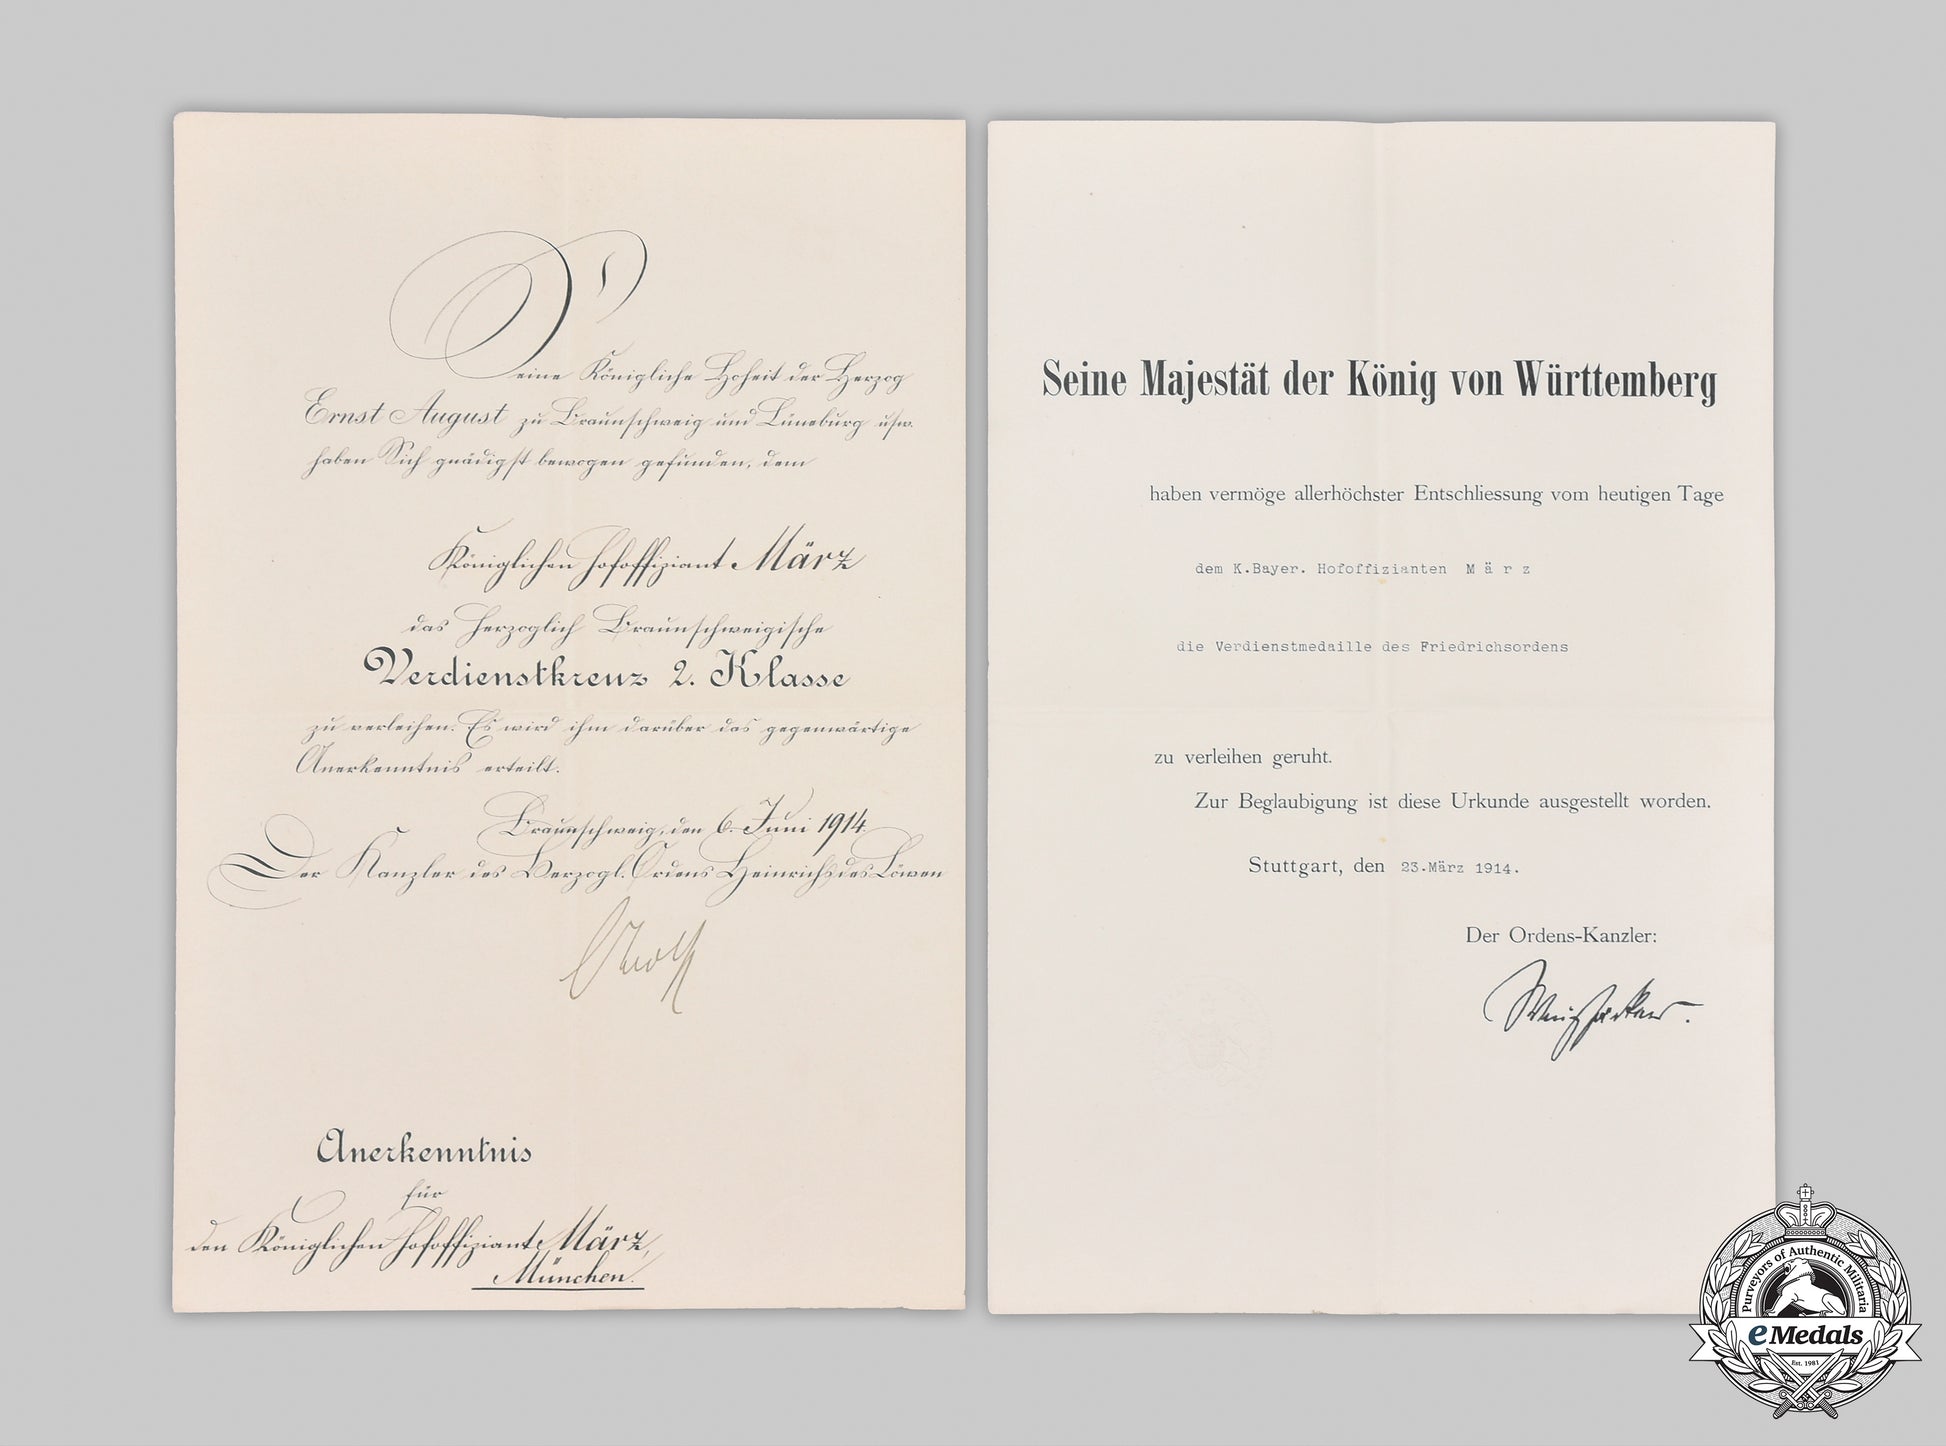 Seine Königliche Hoheit der Herzog
Ernst August zu Braunschweig und Lüneburg usw.
haben Sich gnädigst bewogen gefunden, dem
Königlichen Hofoffiziant März
das Herzoglich Braunschweigische
Verdienstkreuz 2. Klasse
zu verleihen. Es wird ihm darüber das gegenwärtige
Anerkenntnis erteilt.
Braunschweig, den 6. Juni 1914.
Der Kanzler des Herzogl. Ordens Heinrichs des Löwen
Anerkenntnis
für
den Königlichen Hofoffiziant März,
München.
Seine Majestät der König von Württemberg
haben vermöge allerhöchster Entschliessung vom heutigen Tage
dem K.Bayer. Hofoffizianten März
die Verdienstmedaille des Friedrichsordens
zu verleihen geruht.
Zur Beglaubigung ist diese Urkunde ausgestellt worden.
Stuttgart, den 23.März 1914.
Der Ordens-Kanzler:
Purveyors of Authentic Militaria
eMedals
Est. 1981